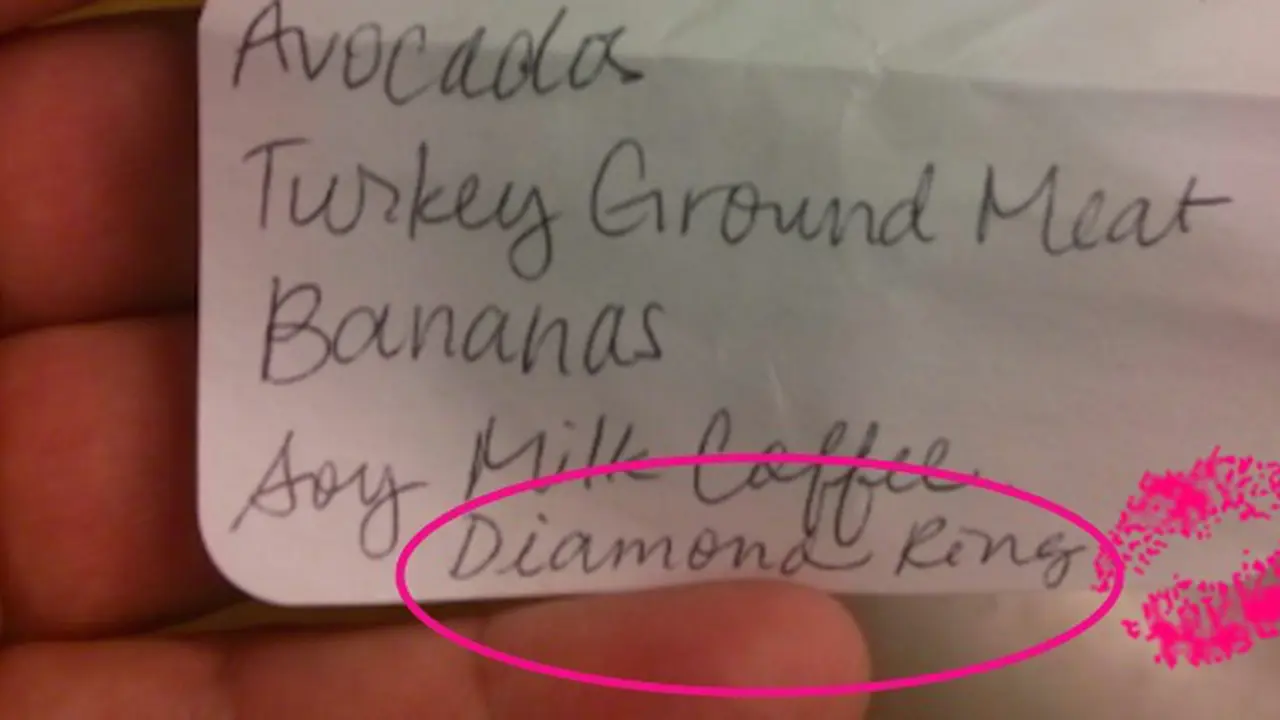 Avocados
Turkey Ground Meat
Bananas
Soy Milk Coffee
Diamond Ring